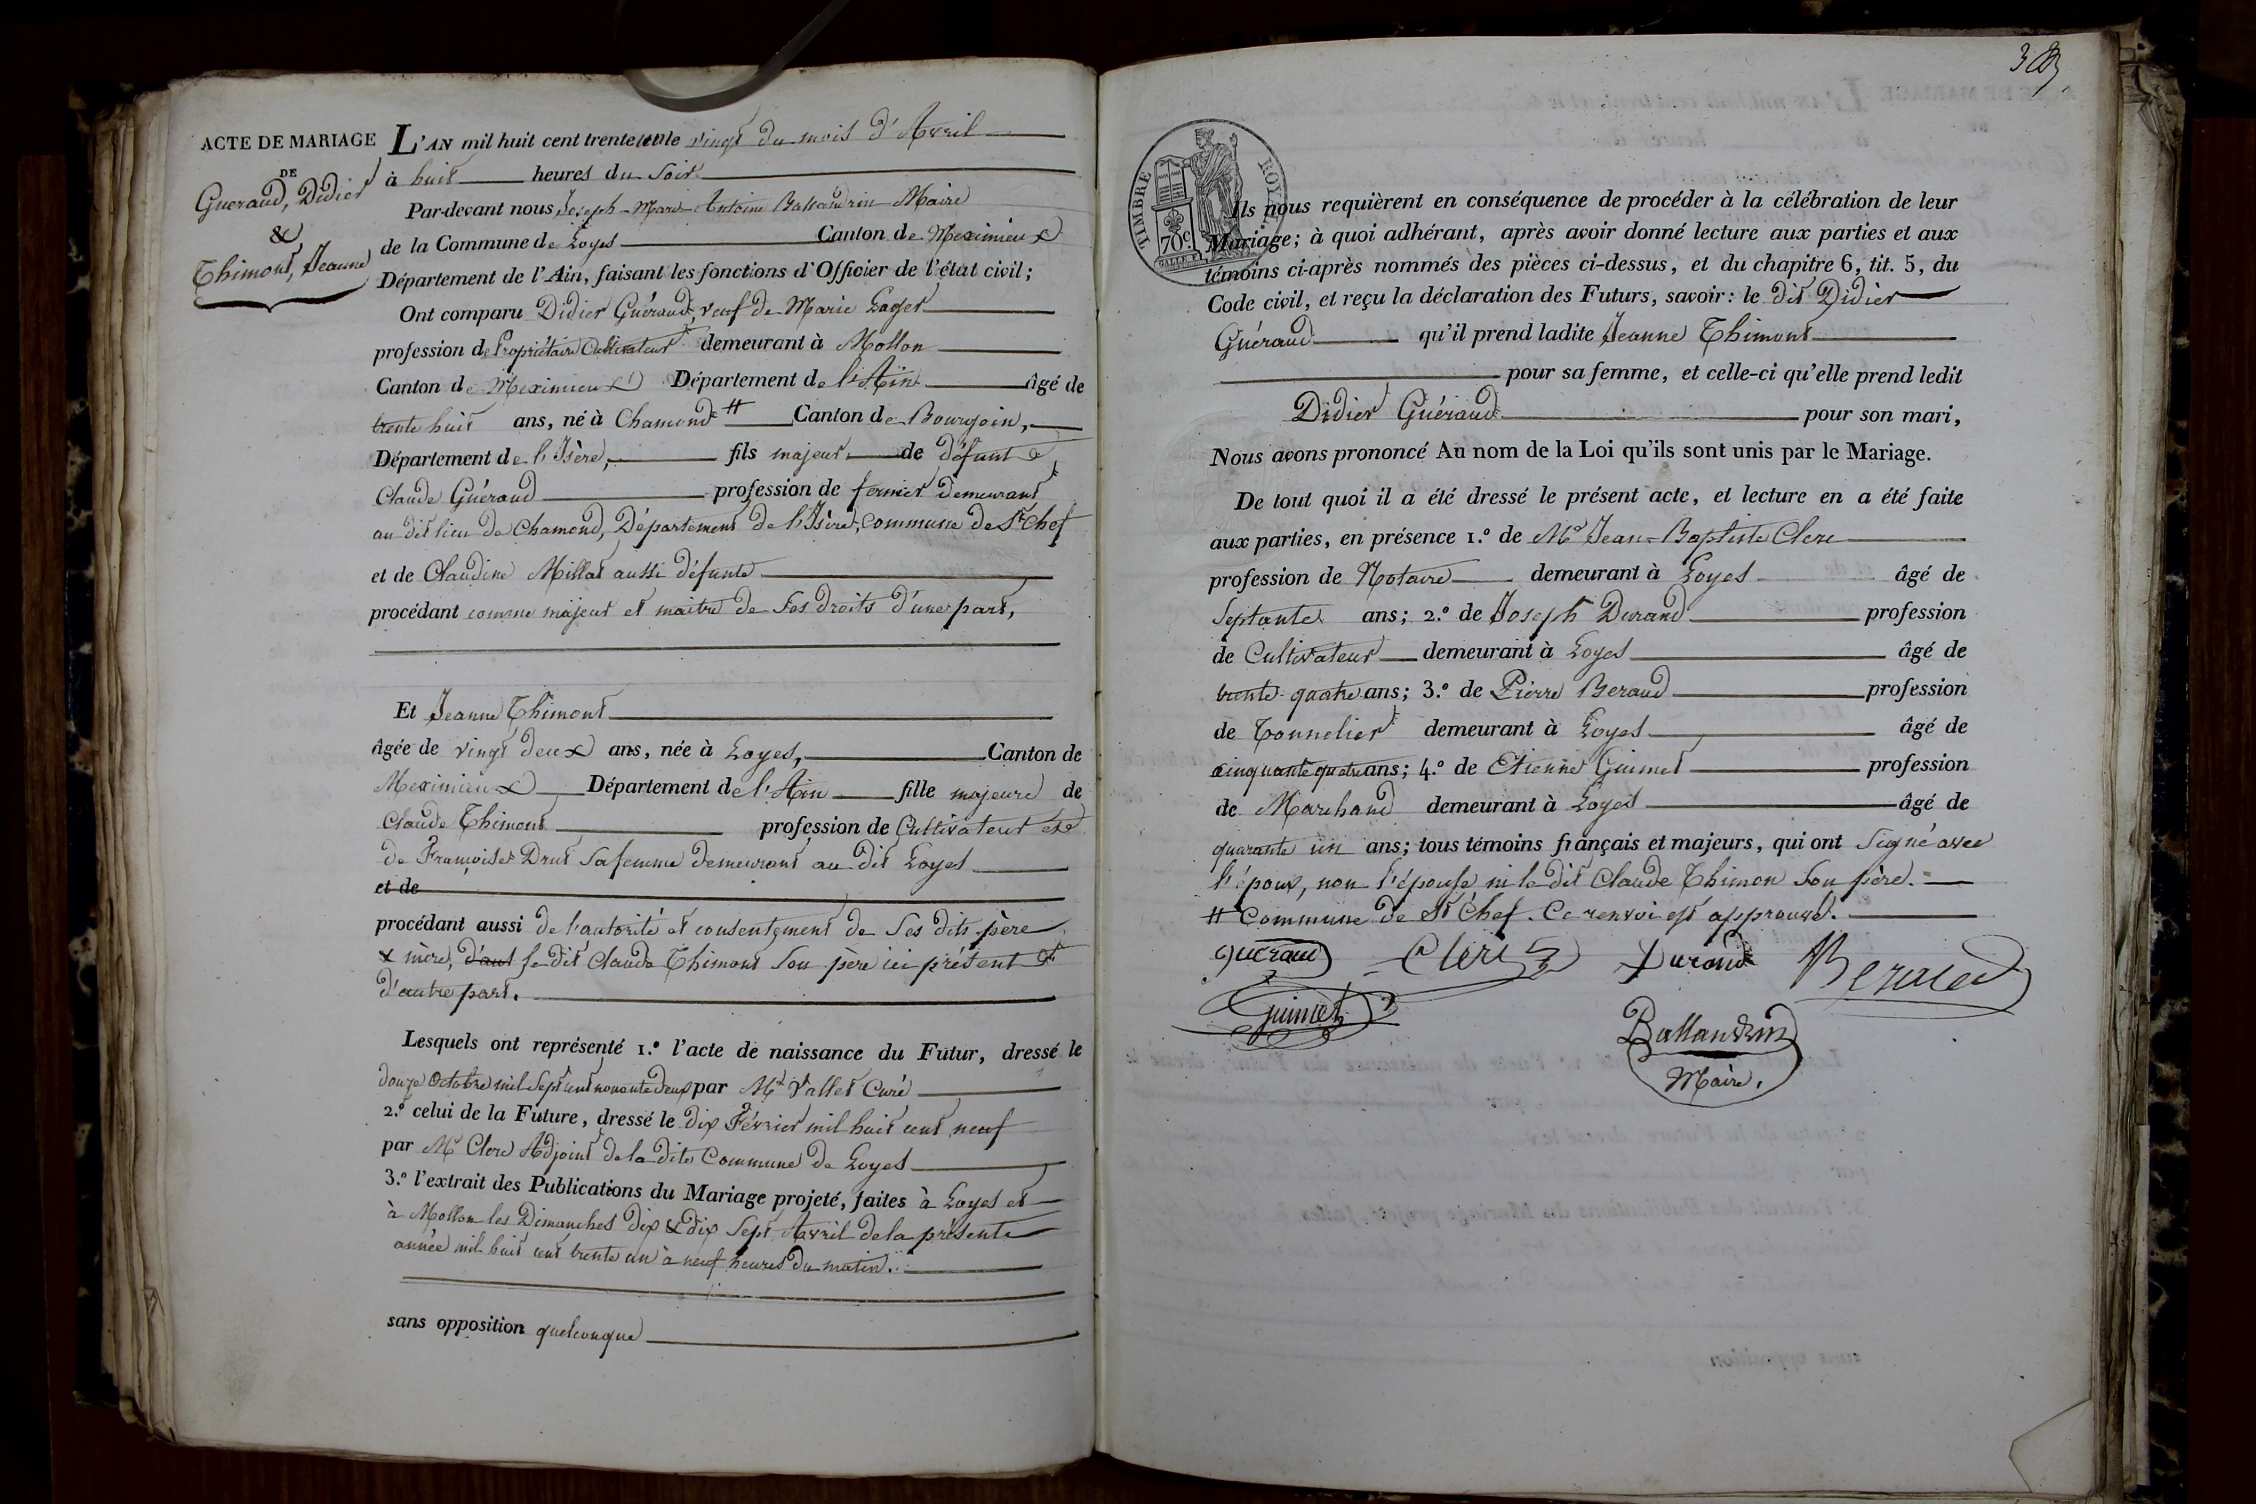 ACTE DE MARIAGE
DE
Gueraud, Didier
&
Thimont, Jeanne
L'AN mil huit cent trente un le vingt du mois d'Avril
à huit heures du Soir
Par-devant nous Joseph-Marie Antoine Ballandrin Maire
de la Commune de Loyes Canton de Meximieux
Département de l'Ain, faisant les fonctions d'Officier de l'état civil;
Ont comparu Didier Guéraud, veuf de Marie Layer
profession de Propriétaire Cultivateur demeurant à Mollon
Canton de Meximieux Département de l'Ain âgé de
trente huit ans, né à Chamond # Canton de Bourgoin,
Département de l'Isère, fils majeur de défunt
Claude Guéraud profession de fermier demeurant
au dit lieu de Chamond, Département de l'Isère, Commune de St Chef
et de Claudine Millat aussi défunte
procédant comme majeur et maitre de Ses droits d'une part,
Et Jeanne Thimont
âgée de vingt deux ans, née à Loyes, Canton de
Meximieux Département de l'Ain fille majeure de
Claude Thimont profession de Cultivateur et
de Françoise Drut Sa femme demeurant au dit Loyes
et de
procédant aussi de l'autorité et consentement de Ses dits père
& mère, d'aut le dit Claude Thimont Son père ici présent
d'autre part.
Lesquels ont représenté 1.º l'acte de naissance du Futur, dressé le
douze Octobre mil Sept cent nonante deux par Mr Vallet Curé
2.º celui de la Future, dressé le dix Février mil huit cent neuf
par Mr Clerc Adjoint de la dite Commune de Loyes
3.º l'extrait des Publications du Mariage projeté, faites à Loyes et
à Mollon les Dimanches dix & dix Sept Avril de la présente
année mil huit cent trente un à neuf heures du matin.
sans opposition quelconque
383
TIMBRE ROYAL
70c
Ils nous requièrent en conséquence de procéder à la célébration de leur
Mariage; à quoi adhérant, après avoir donné lecture aux parties et aux
témoins ci-après nommés des pièces ci-dessus, et du chapitre 6, tit. 5, du
Code civil, et reçu la déclaration des Futurs, savoir: le dit Didier
Guéraud qu'il prend ladite Jeanne Thimont
pour sa femme, et celle-ci qu'elle prend ledit
Didier Guéraud pour son mari,
Nous avons prononcé Au nom de la Loi qu'ils sont unis par le Mariage.
De tout quoi il a été dressé le présent acte, et lecture en a été faite
aux parties, en présence 1.º de Me Jean-Baptiste Clerc
profession de Notaire demeurant à Loyes âgé de
Septante ans; 2.º de Joseph Durand profession
de Cultivateur demeurant à Loyes âgé de
trente-quatre ans; 3.º de Pierre Beraud profession
de Tonnelier demeurant à Loyes âgé de
cinquante quatre ans; 4.º de Etienne Guimet profession
de Marchand demeurant à Loyes âgé de
quarante un ans; tous témoins français et majeurs, qui ont Signé avec
l'époux, non l'épouse ni le dit Claude Thimon Son père.
# Commune de St Chef. Ce renvoi est approuvé.
gueraud Clerc Durand Beraud
Guimet
Ballandrin
Maire.